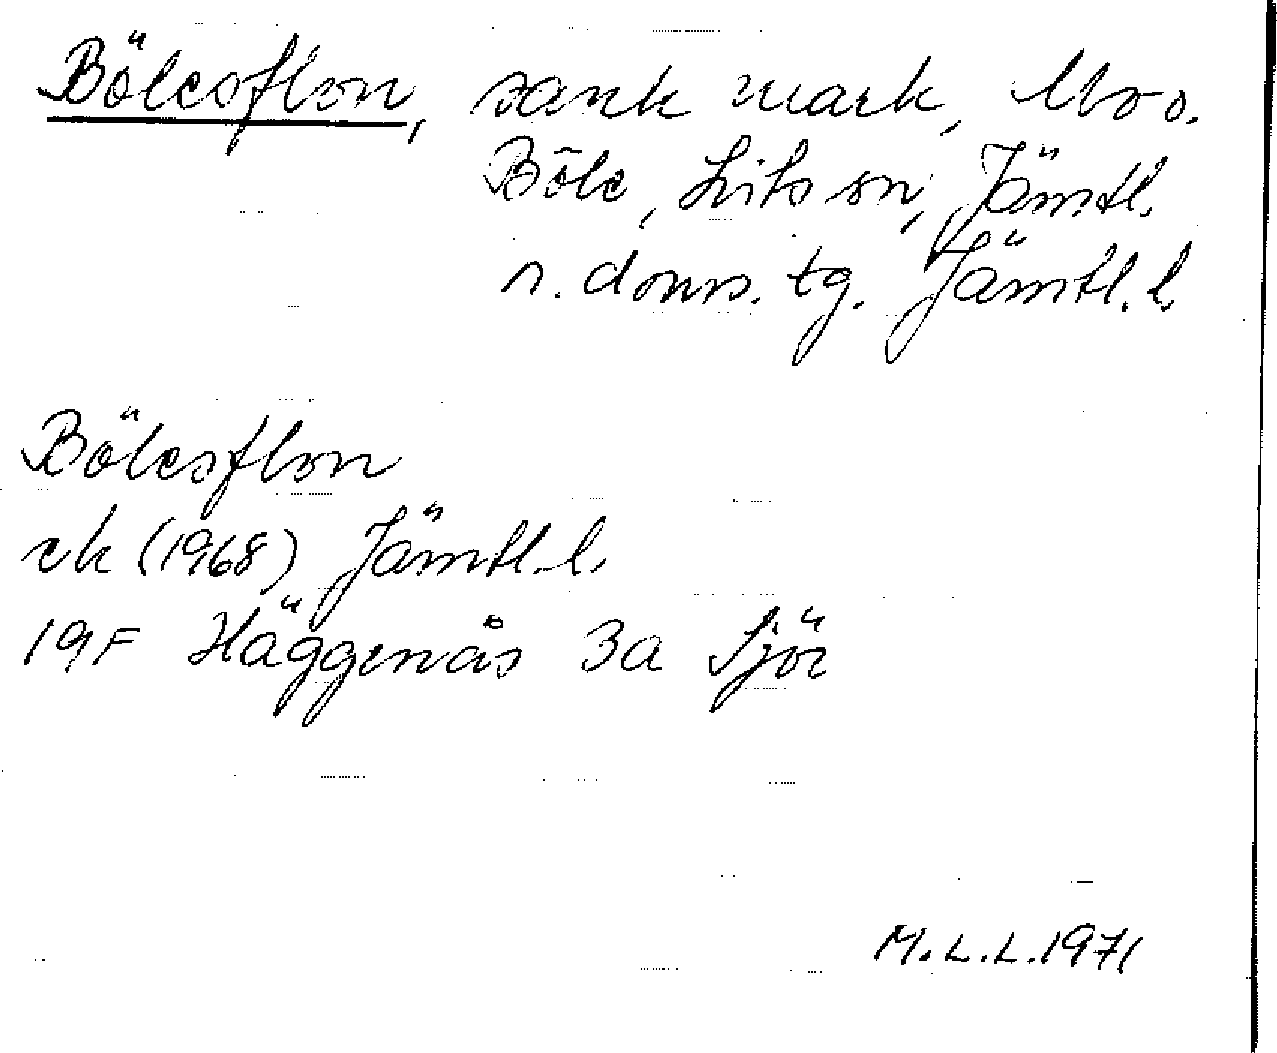 Bölesflon, sank mark, Ntr o.
Böle, Lits sn, Jämtl.
n. doms. tg. Jämtl. l.
Bölesflon
ek (1968) Jämtl. l.
19F Häggenås 3a Sjör
M.L.L.1971